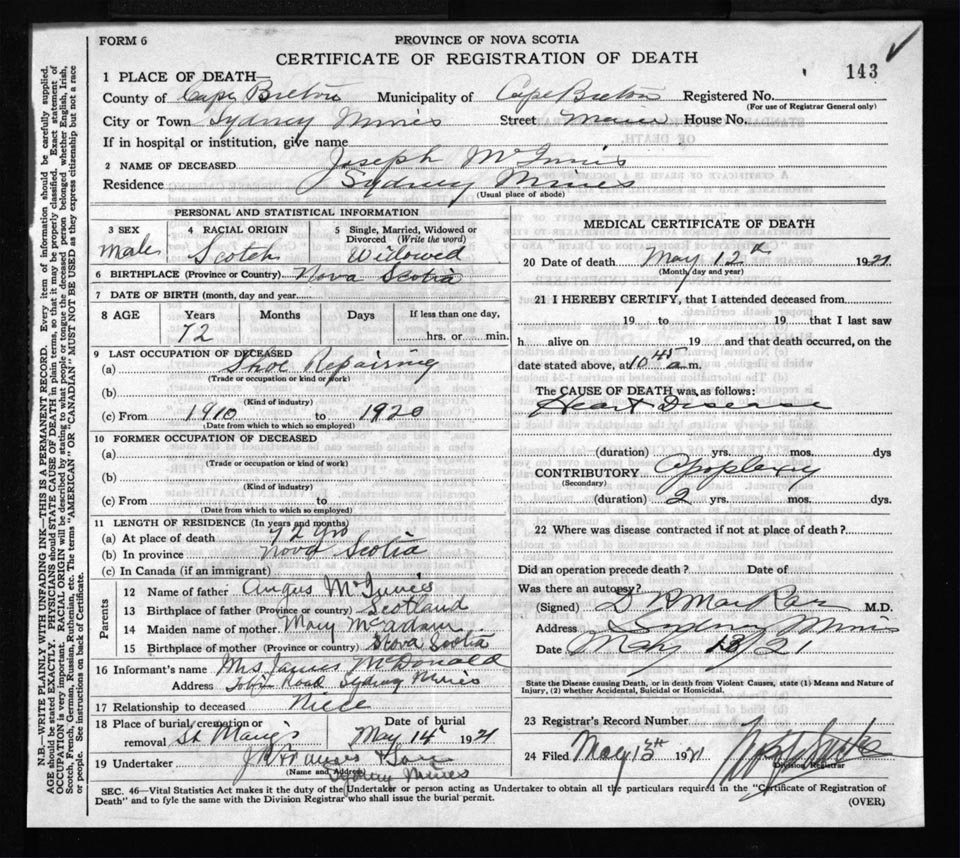 FORM 6
PROVINCE OF NOVA SCOTIA
CERTIFICATE OF REGISTRATION OF DEATH
143
1 PLACE OF DEATH—
County of Cape Breton Municipality of Cape Breton Registered No.
(For use of Registrar General only)
City or Town Sydney Mines Street Main House No.
If in hospital or institution, give name
2 NAME OF DECEASED Joseph McInnis
Residence Sydney Mines
(Usual place of abode)
PERSONAL AND STATISTICAL INFORMATION
3 SEX Male
4 RACIAL ORIGIN Scotch
5 Single, Married, Widowed or Divorced (Write the word) Widowed
6 BIRTHPLACE (Province or Country) Nova Scotia
7 DATE OF BIRTH (month, day and year
8 AGE Years Months Days If less than one day,
72 hrs. or min.
9 LAST OCCUPATION OF DECEASED
(a) Shoe Repairing
(Trade or occupation or kind of work)
(b)
(Kind of industry)
(c) From 1910 to 1920
(Date from which to which so employed)
10 FORMER OCCUPATION OF DECEASED
(a)
(Trade or occupation or kind of work)
(b)
(Kind of industry)
(c) From to
(Date from which to which so employed)
11 LENGTH OF RESIDENCE (In years and months)
(a) At place of death 72 yrs
(b) In province Nova Scotia
(c) In Canada (if an immigrant)
Parents
12 Name of father Angus McInnis
13 Birthplace of father (Province or country) Scotland
14 Maiden name of mother Mary McAdam
15 Birthplace of mother (Province or country) Nova Scotia
16 Informant's name Mrs James McDonald
Address Tobin Road Sydney Mines
17 Relationship to deceased Niece
18 Place of burial, cremation or removal St Marys
Date of burial May 14th 1921
19 Undertaker & Son
(Name and Address) Sydney Mines
MEDICAL CERTIFICATE OF DEATH
20 Date of death May 12th 1921
(Month, day and year)
21 I HEREBY CERTIFY, that I attended deceased from
19 to 19 that I last saw
h alive on 19 and that death occurred, on
date stated above, at 10 45 a.m.
The CAUSE OF DEATH was as follows:
Heart Disease
(duration) yrs. mos. dys
CONTRIBUTORY Apoplexy
(Secondary)
(duration) 2 yrs. mos. dys.
22 Where was disease contracted if not at place of death?
Did an operation precede death? Date of
Was there an autopsy?
(Signed) M.D.
Address Sydney Mines
Date May 13/21
State the Disease causing Death, or in death from Violent Causes, state (1) Means and Nature of
Injury, (2) whether Accidental, Suicidal or Homicidal.
23 Registrar's Record Number
24 Filed May 1921
Division Registrar
SEC. 46—Vital Statistics Act makes it the duty of the Undertaker or person acting as Undertaker to obtain all the particulars required in the "Certificate of Registration of
Death" and to fyle the same with the Division Registrar who shall issue the burial permit.
(OVER)
N.B.—WRITE PLAINLY WITH UNFADING INK—THIS IS A PERMANENT RECORD. Every item of information should be carefully supplied.
AGE should be stated EXACTLY. PHYSICIANS should STATE CAUSE OF DEATH in plain terms, so that it may be properly classified. Exact statement of
OCCUPATION is very important. RACIAL ORIGIN will be described by stating to what people or tongue the deceased person belonged whether English, Irish,
Scotch, French, German, Russian, Ruthenian, etc. The terms "AMERICAN" OR "CANADIAN" MUST NOT BE USED as they express citizenship but not a race
or people. See instructions on back of Certificate.